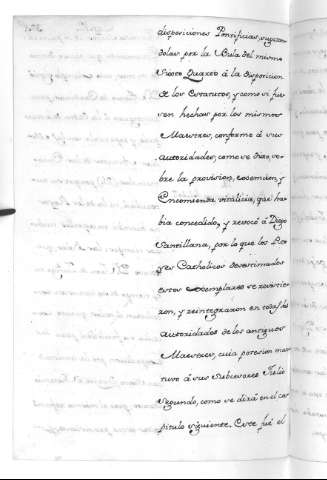 disposiciones Pontificias, sugetan
dolas por la Bula del mismo
Sixto Quarto á la disposicion
de los Estatutos, y como si fue
sen hechas por los mismos
Maestres, conforme á sus
autoridades, como se dixo, so
bre la provision, esencion, y
Encomienda vitalicia, que ha
bia concedido, y revocó á Diego
Santillana, por lo que los Re
yes Catholicos
estos exemplares se
ron, y reintegraron en todas las
autoridades de los antiguos
Maestres, cuia posesion man
tuvo á sus Subcesores Felipe
Segundo, como se dirá en el ca
pitulo siguiente. Este fué el